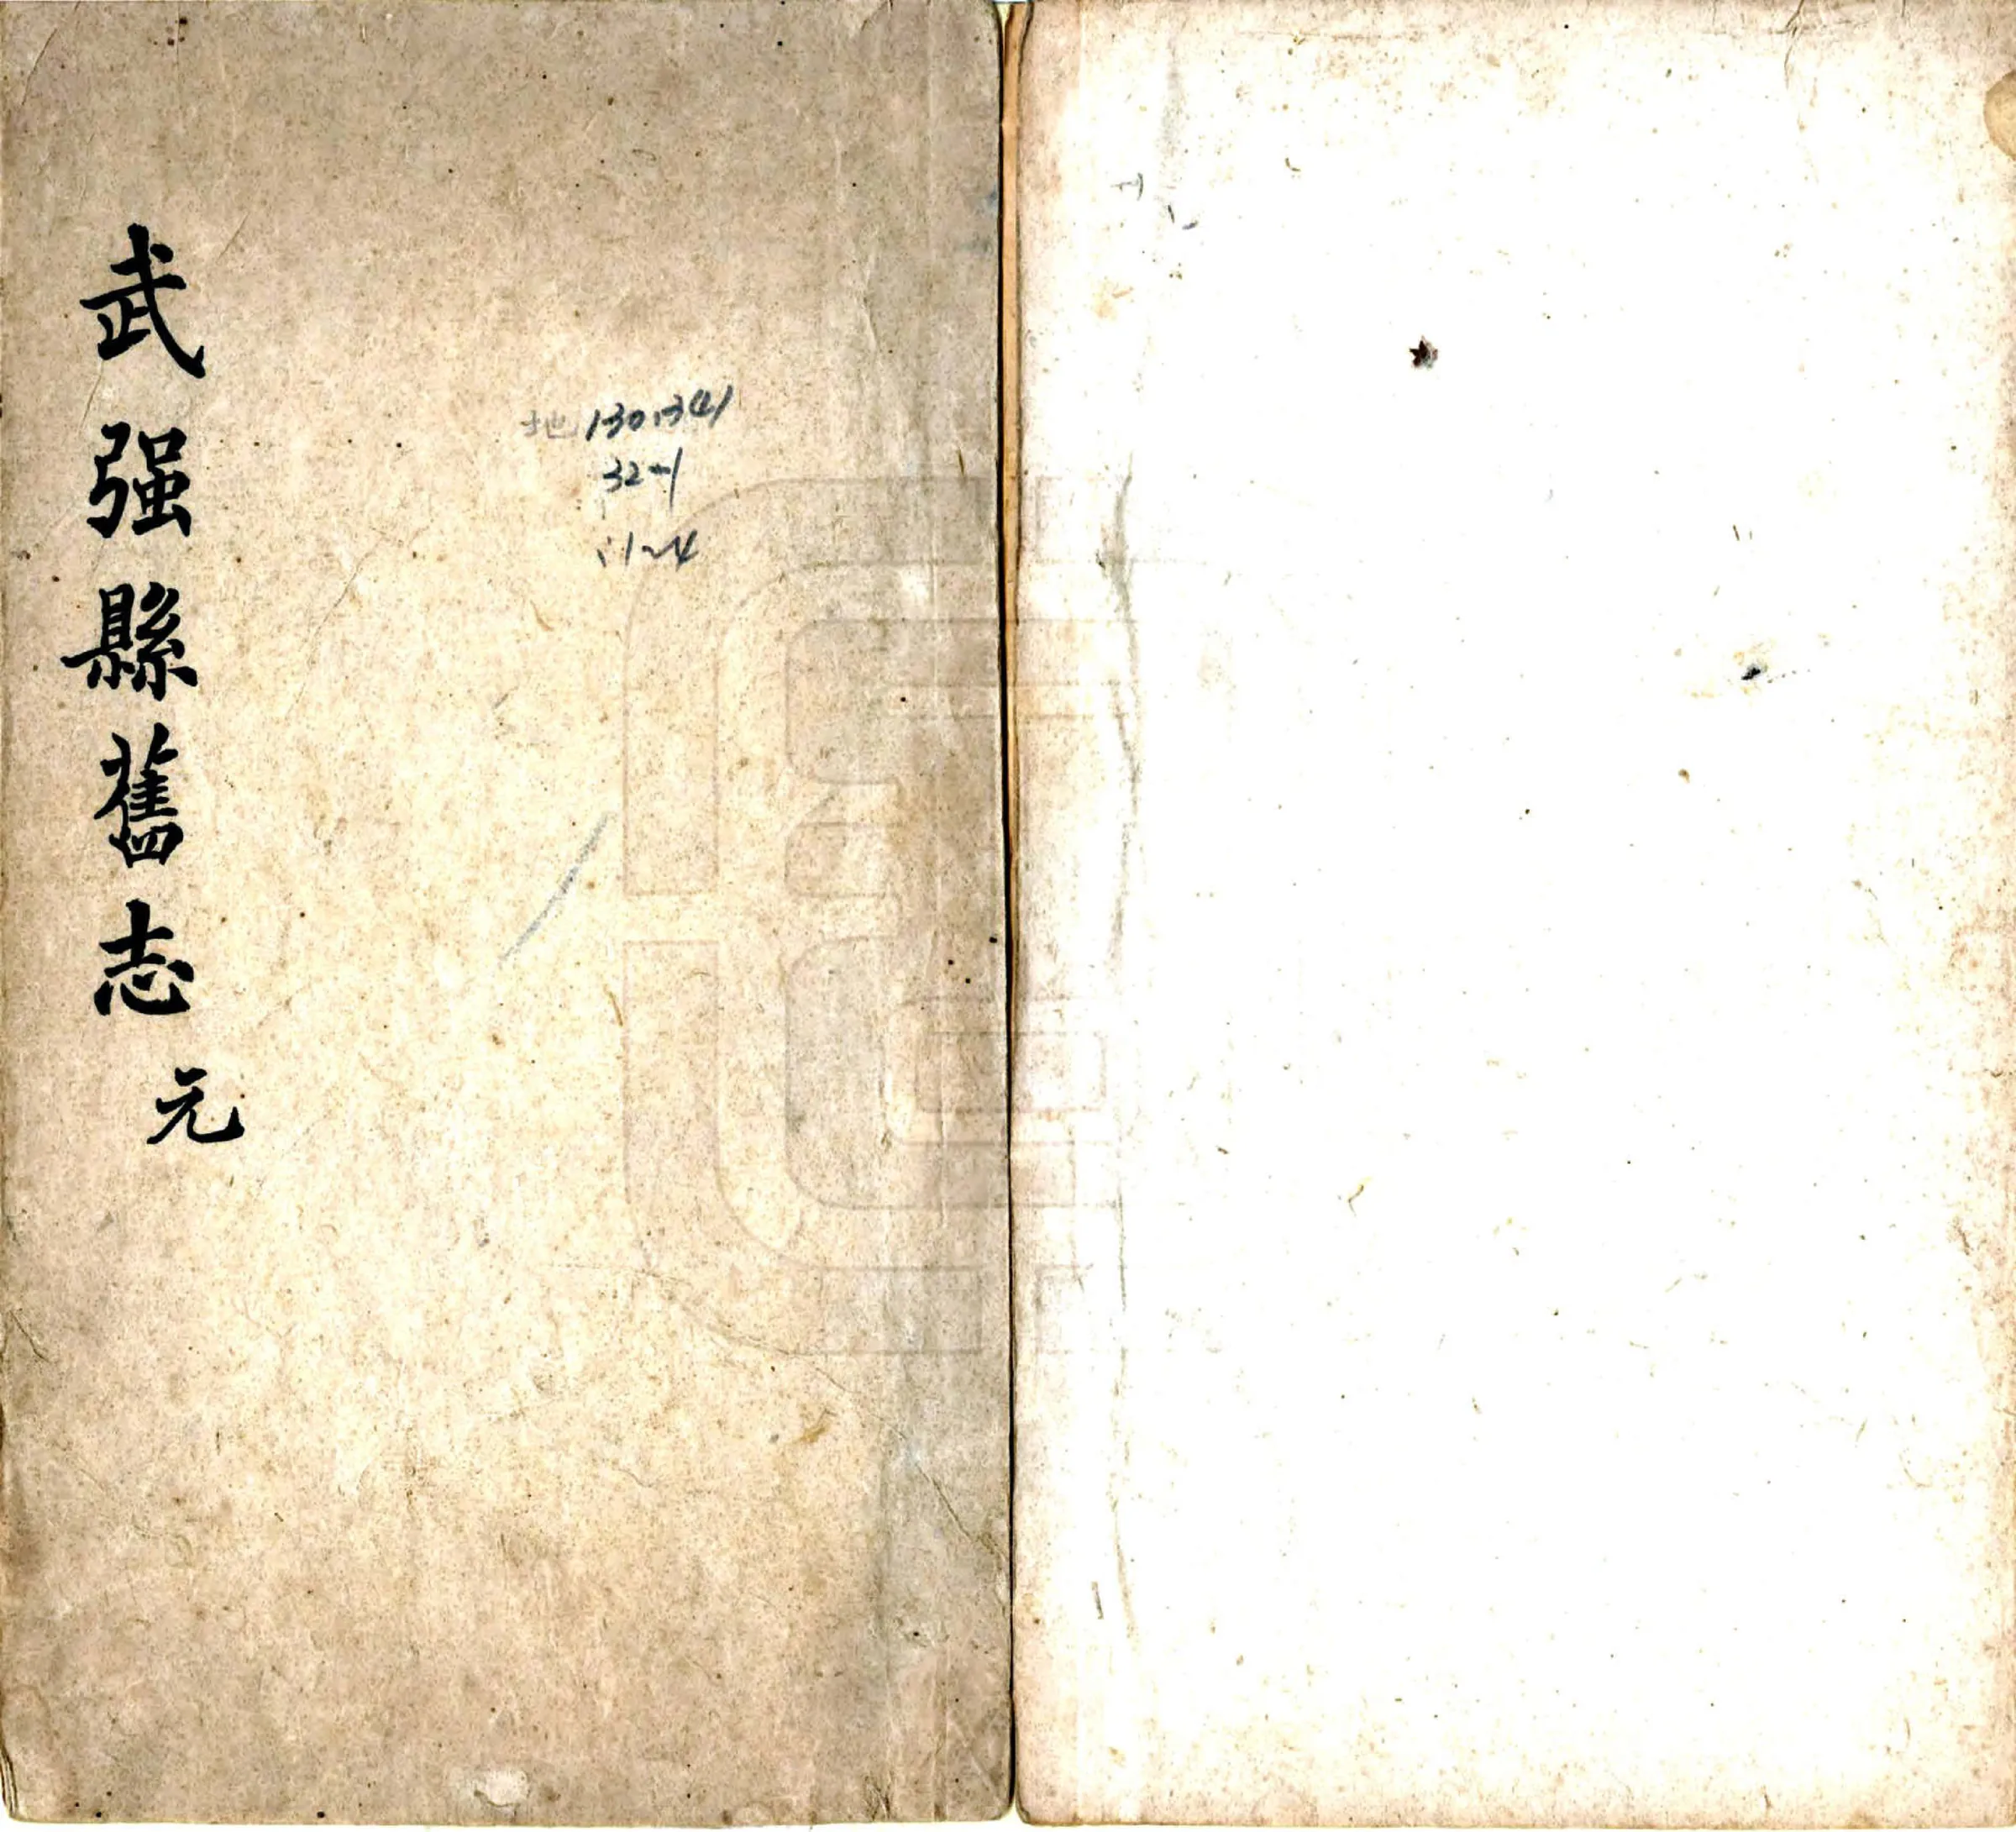 武强縣舊志 元
地130.341
32-1
:1~4